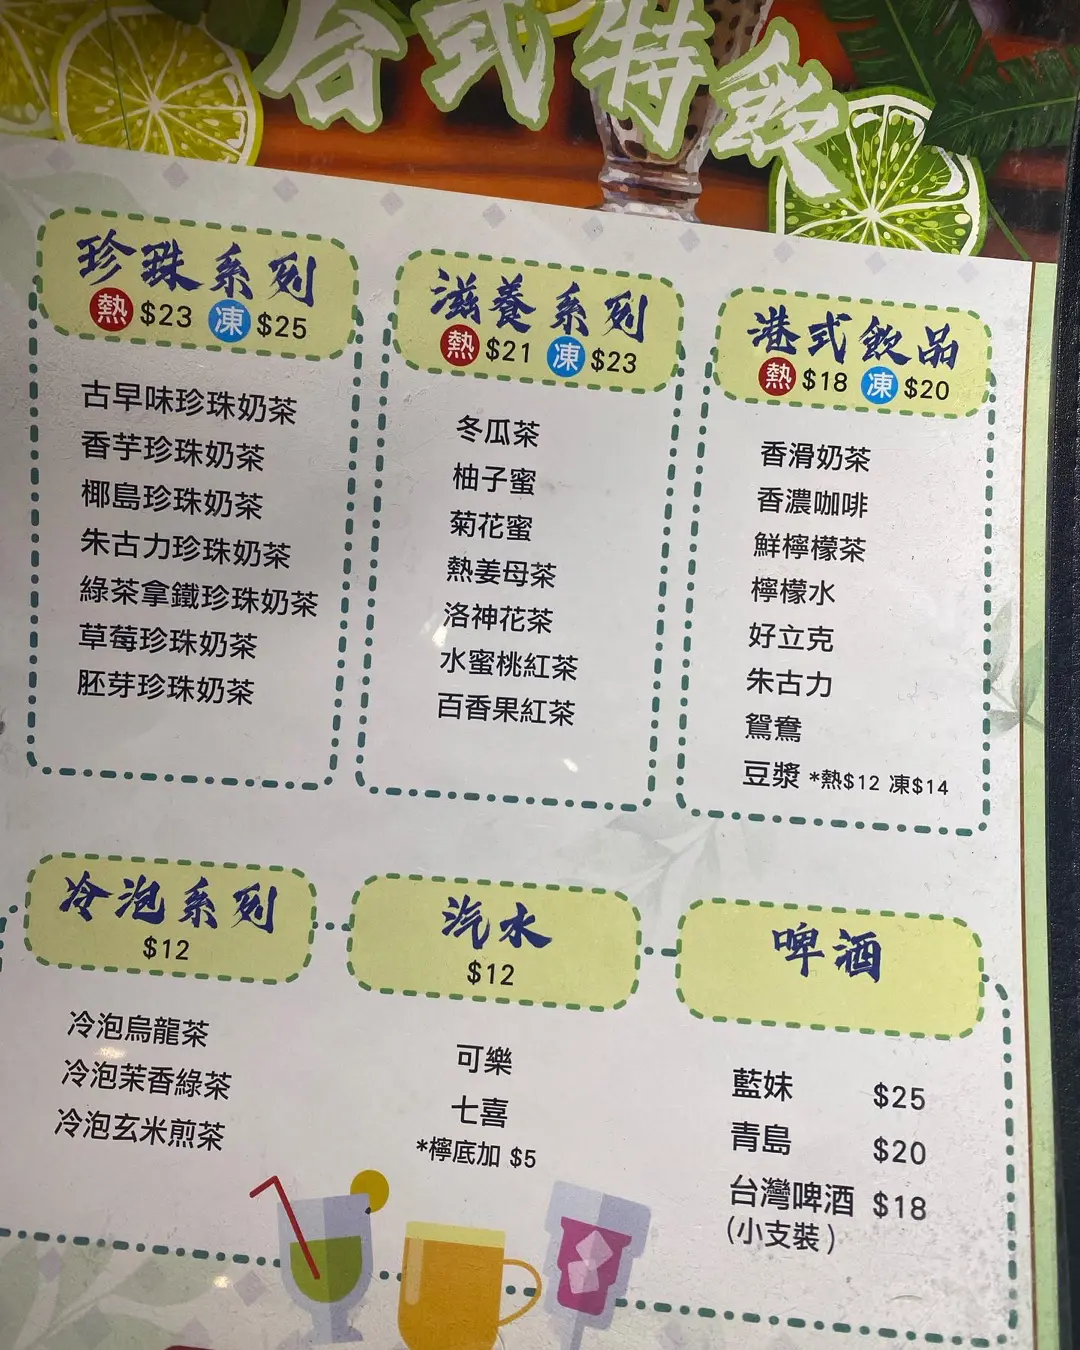 台式特飲
珍珠系列
熱 $23 凍 $25
古早味珍珠奶茶
香芋珍珠奶茶
椰島珍珠奶茶
朱古力珍珠奶茶
綠茶拿鐵珍珠奶茶
草莓珍珠奶茶
胚芽珍珠奶茶
滋養系列
熱 $21 凍 $23
冬瓜茶
柚子蜜
菊花蜜
熱姜母茶
洛神花茶
水蜜桃紅茶
百香果紅茶
港式飲品
熱 $18 凍 $20
香滑奶茶
香濃咖啡
鮮檸檬茶
檸檬水
好立克
朱古力
鴛鴦
豆漿 *熱$12 凍$14
冷泡系列
$12
冷泡烏龍茶
冷泡茉香綠茶
冷泡玄米煎茶
汽水
$12
可樂
七喜
*檸底加 $5
啤酒
藍妹 $25
青島 $20
台灣啤酒 $18
(小支裝)